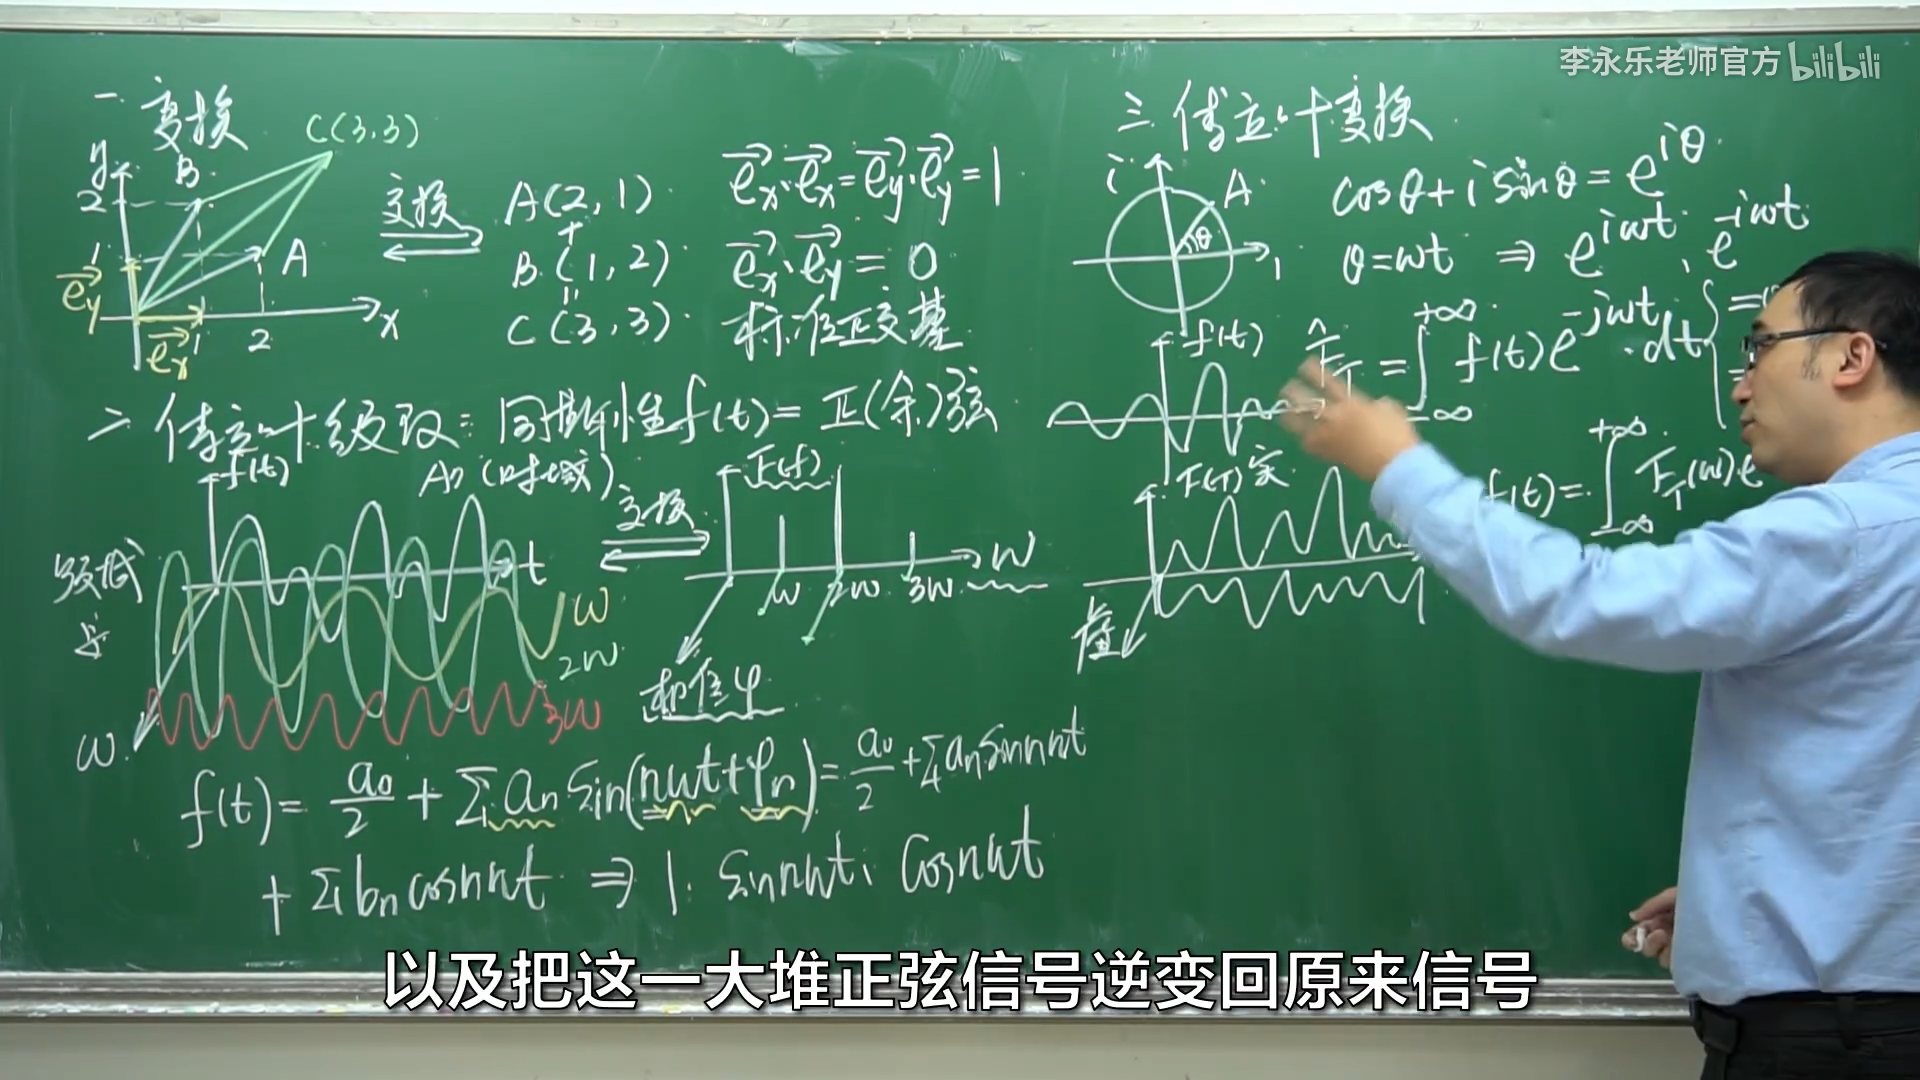 李永乐老师官方 bilibili
一. 变换
y
2
B
C(3,3)
1
A
e⃗y
e⃗x
1
2
x
变换
A(2,1)
+
B(1,2)
=
C(3,3)
e⃗x·e⃗x=e⃗y·e⃗y=1
e⃗x·e⃗y=0
标准正交基
二 傅立叶级数: 周期性f(t)=正(余)弦
f(t)
(时域)
t
ω
2ω
3ω
ω
变换
F(f)
ω
2ω
3ω
ω
相位φ
f(t)= a₀/2 + Σ aₙ sin(nωt+φₙ)= a₀/2 +Σ aₙ sin nωt
+ Σ bₙ cos nωt ⇒ 1. sin nωt, cos nωt
三. 傅立叶变换
i
A
θ
1
cosθ+i sinθ=e^{iθ}
θ=ωt ⇒ e^{iωt}, e^{-iωt}
f(t)
F_T=∫_{-∞}^{+∞} f(t)e^{-jωt}·dt
F(T) 实
虚
f(t)=∫_{-∞}^{+∞} F_T(ω)e
以及把这一大堆正弦信号逆变回原来信号